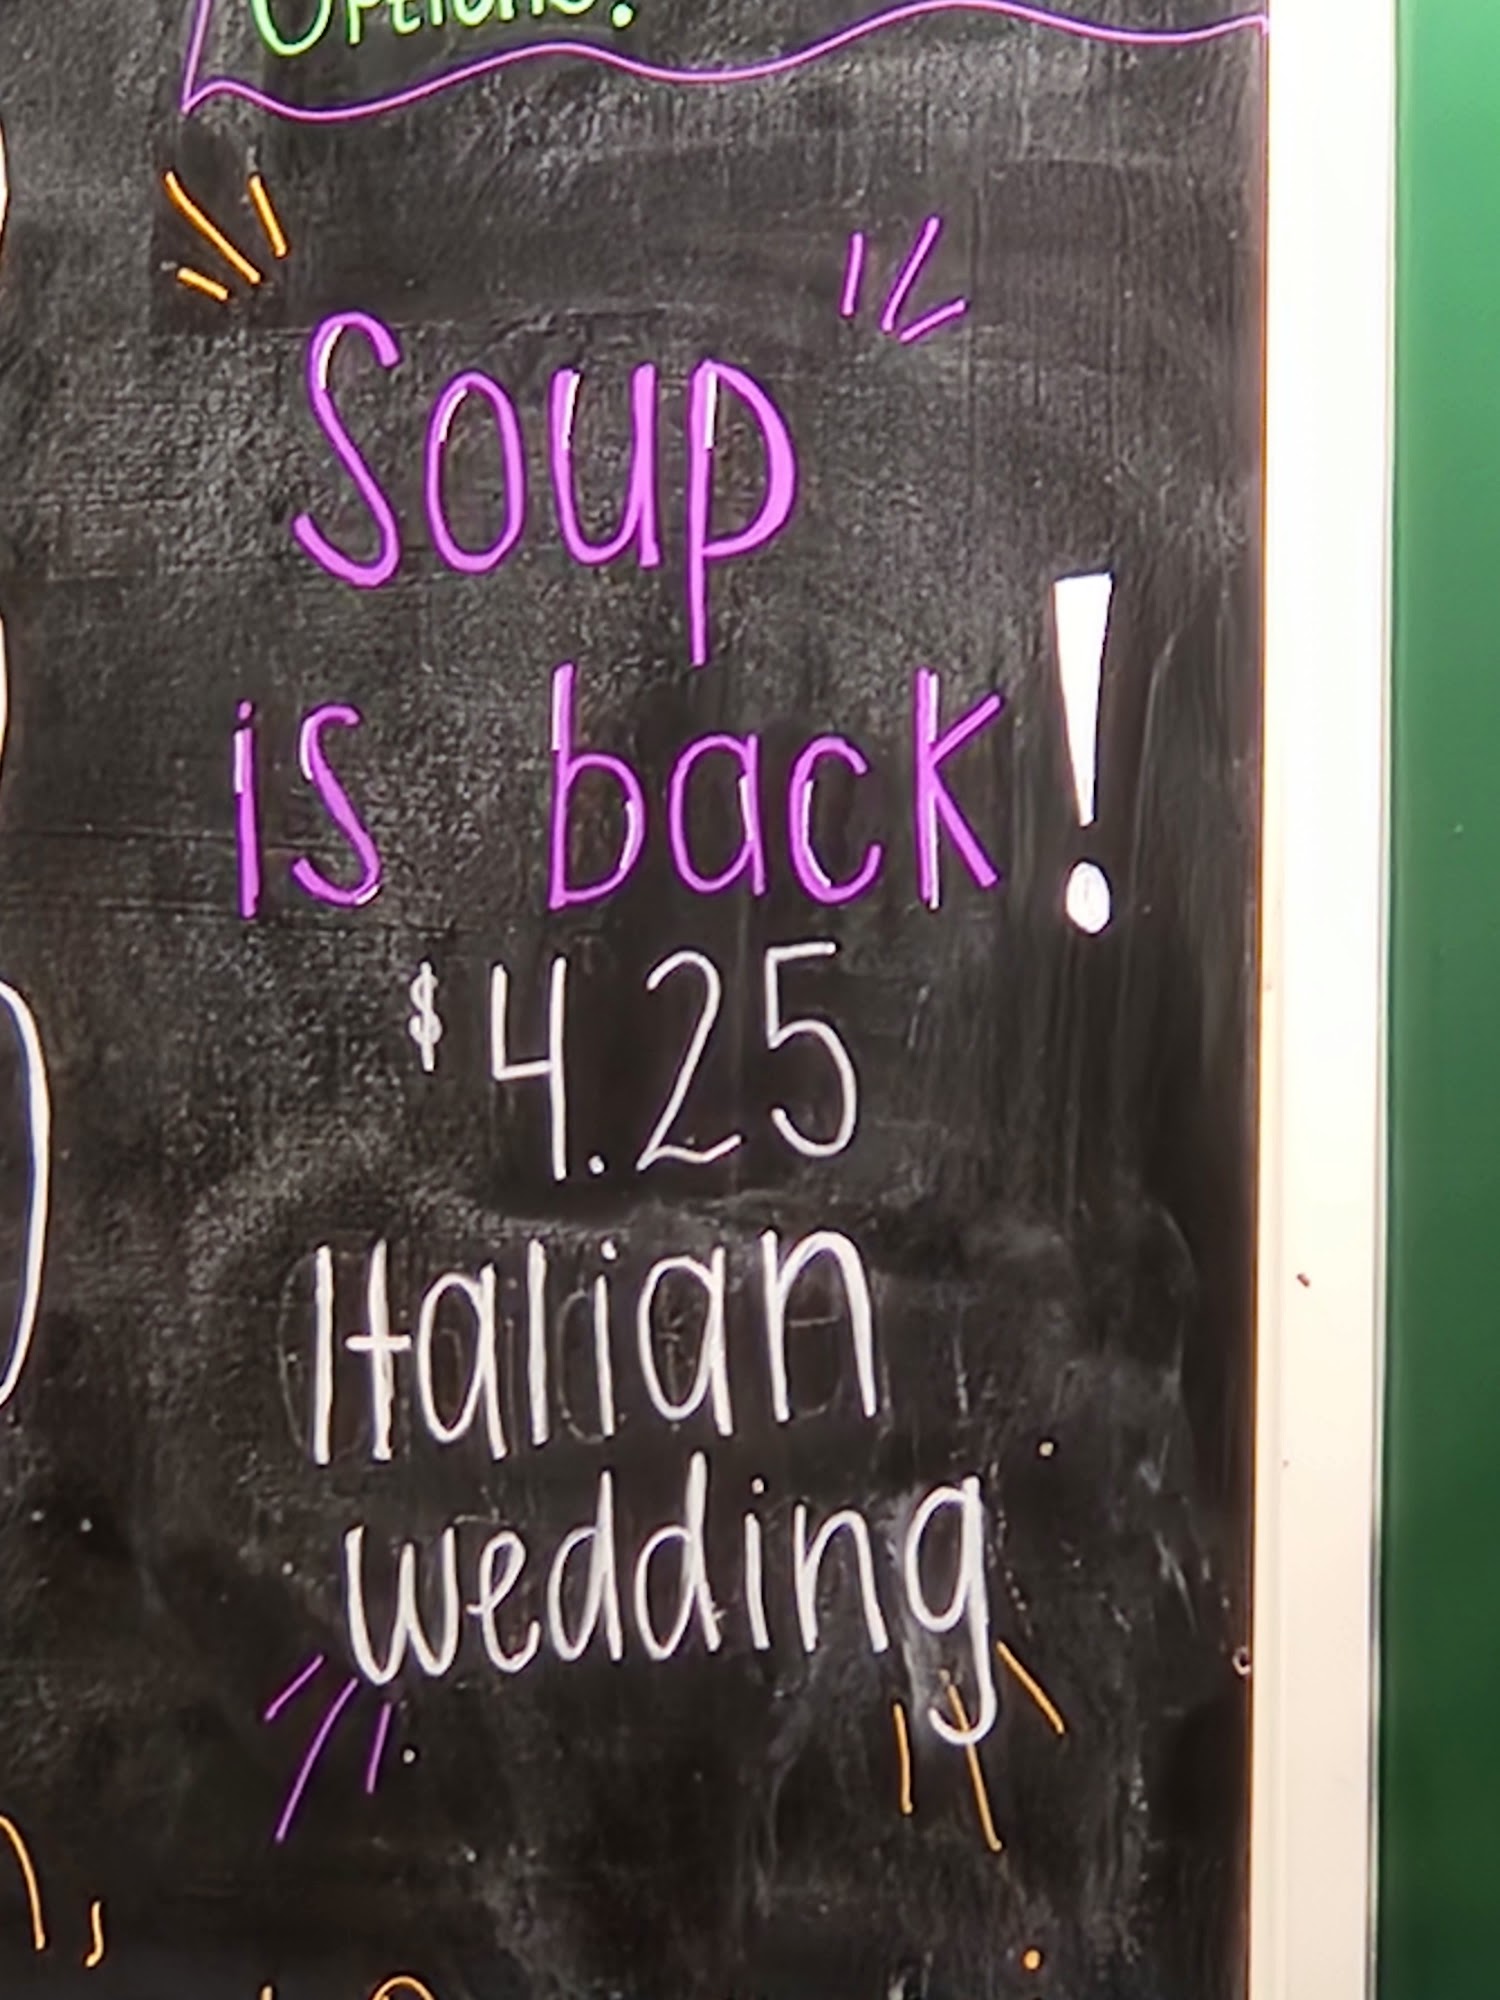 Options!
Soup
is back!
$4.25
Italian
wedding